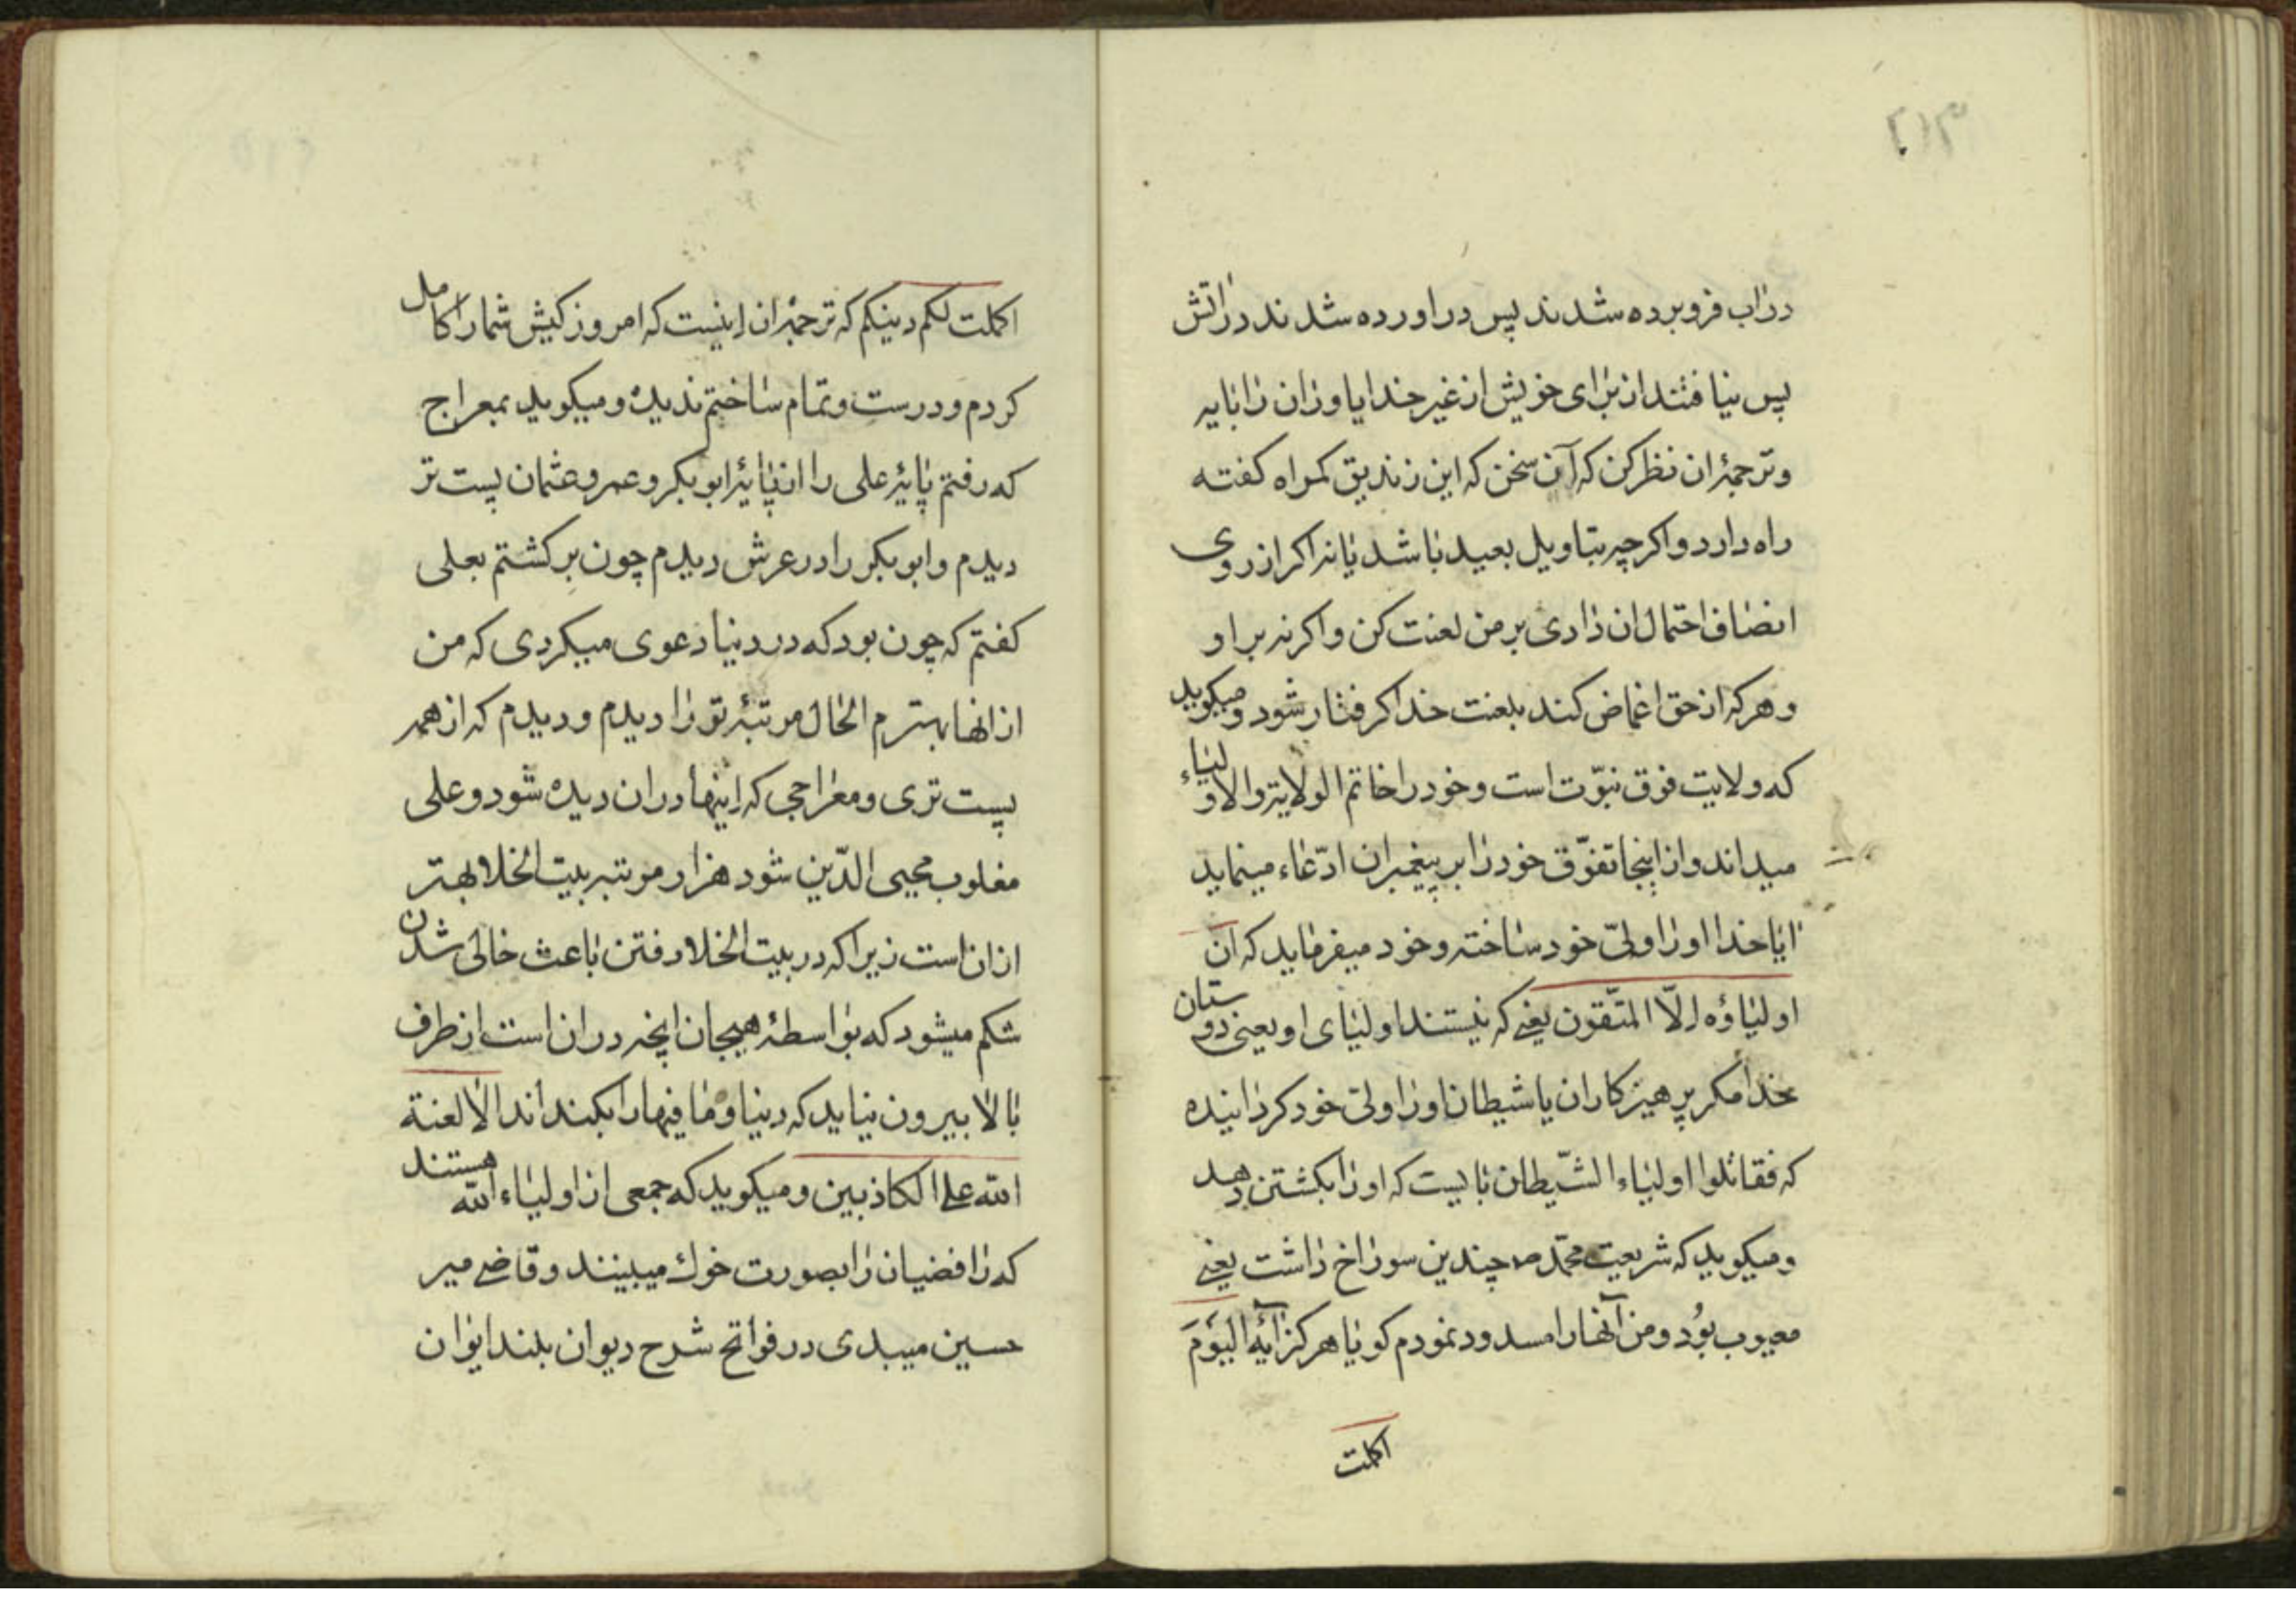 ۲۱۳
دراب فروبرده شدند پس دراورده شدند دراتش
پس نیافتند از برای خویش از غیر خدا یاوران را بایه
وترجمهٔ ان نظر کن که آن سخن که این زندیق کمراه کفته
راه دارد واکر چه بتاویل بعید باشد یا نه اکر از روی
انصاف احتمال ان داری بر من لعنت کن واکر نه بر او
وهر که از حق اغماض کند بلعنت خدا کرفتار شود ومیکوید
که ولایت فوق نبوّت است وخود را خاتم الولایة والاولیاء
میداند واز اینجا تفوّق خود را بر پیغمبران ادّعاء مینماید
ایا خدا او را ولیّ خود ساخته وخود میفرماید که ان
اولیاؤه الّا المتّقون یعنے که نیستند اولیای او یعنی دوستان
خدا مکر پرهیزکاران یا شیطان او را ولیّ خود کردانیده
که فقاتلوا اولیاء الشّیطان بایست که او را بکشتن دهد
ومیکوید که شریعت محمّد ص چندین سوراخ داشت یعنے
معیوب بُود ومن آنها را مسدود نمودم کویا هرکز آیۀ الیَومَ
اکملت
اکملت لکم دینکم که ترجمۀ ان اینست که امروز کیش شما را کامل
کردم ودرست وتمام ساختم ندیده ومیکوید بمعراج
که رفتم پایۀ علی را از پایۀ ابوبکر وعمر وعثمان پست تر
دیدم وابوبکر را در عرش دیدم چون برکشتم بعلی
کفتم که چون بود که در دنیا دعوی میکردی که من
از انها بهترم الحال مرتبۀ تو را دیدم ودیدم که از همه
پست تری ومعراجی که اینها در ان دیده شود وعلی
مغلوب محیی الدّین شود هزار مرتبه بیت الخلا بهتر
از ان است زیرا که در بیت الخلا رفتن باعث خالی شدن
شکم میشود که بواسطۀ هیجان ابخره در ان است از طرف
بالا بیرون نیاید که دنیا وما فیها را بکنداند الا لعنة
الله علے الکاذبین ومیکوید که جمعی از اولیاء الله هستند
که رافضیان را بصورت خوك میبینند وقاضے میر
حسین میبدی در فواتح شرح دیوان بلند ایوان